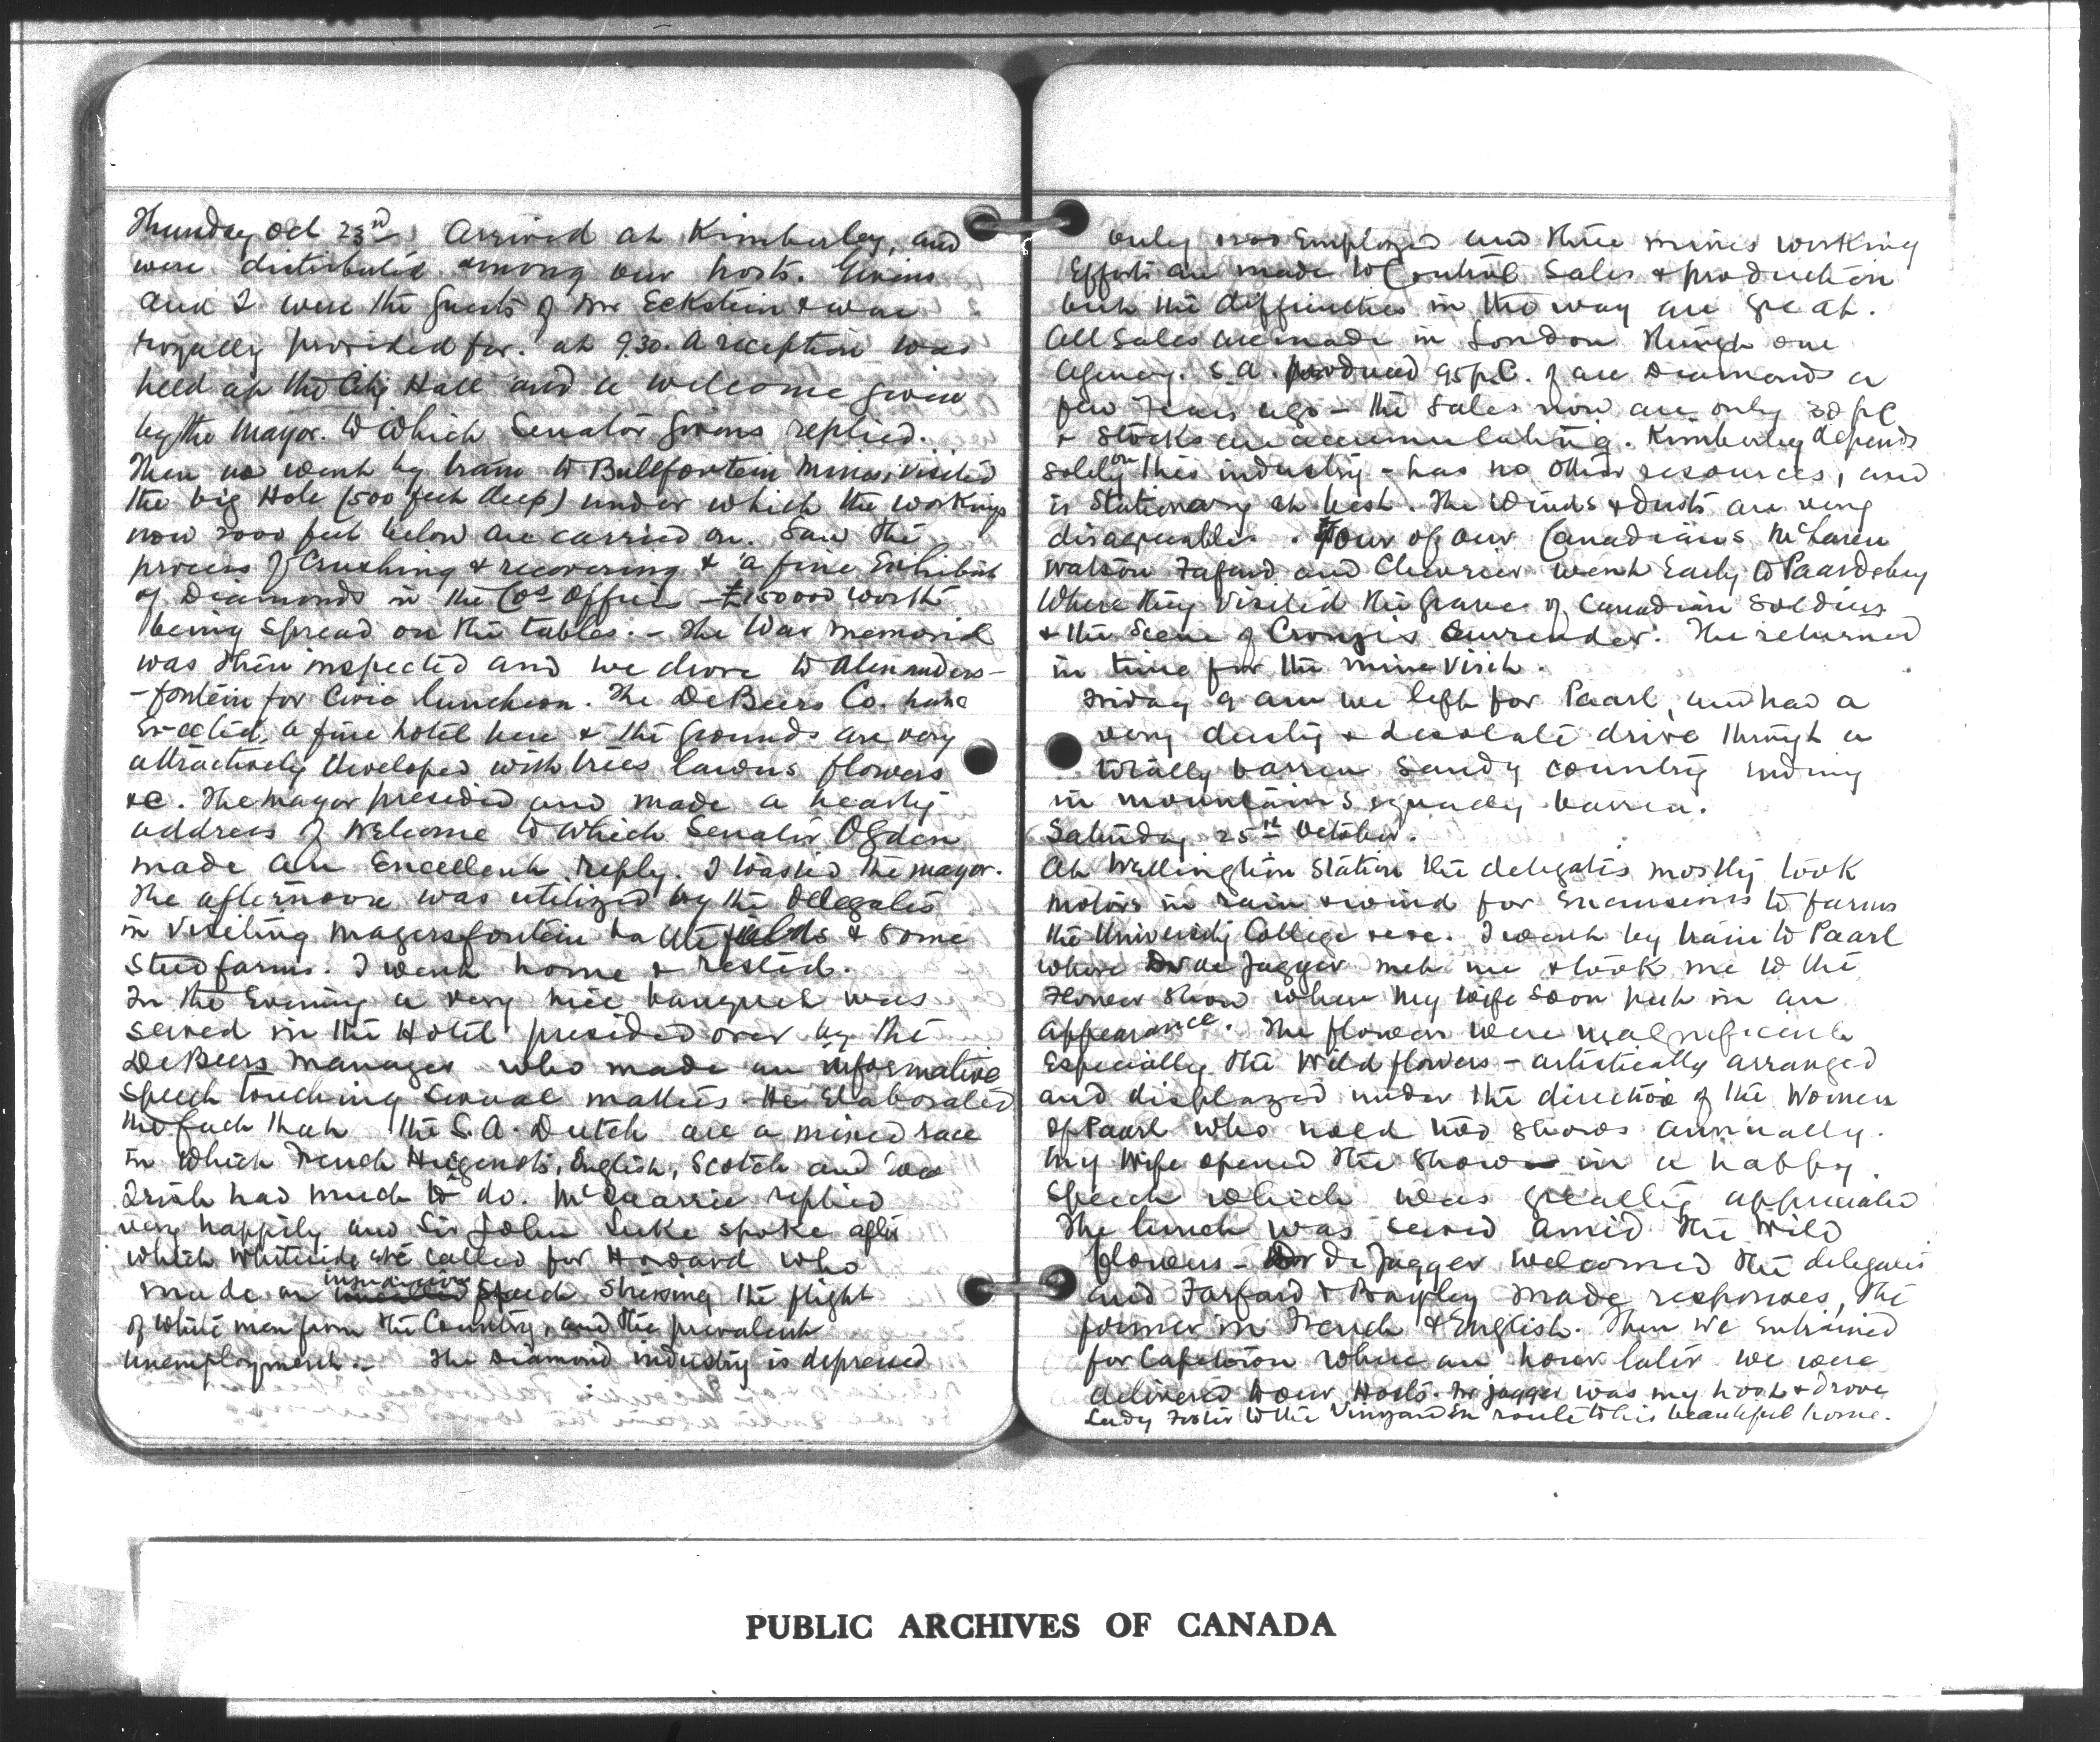 Thursday Oct 23rd Arrived at Kimberley, and
were distributed among our hosts. Givens
and I were the guests of Mr Eckstein & were
royally provided for. at 9.30. A reception was
held at the City Hall and a welcome given
by the Mayor. to which Senator Givens replied.
Then we went by tram to Bultfontein Mines, visited
the big Hole (500 feet deep) under which the workings
now 2000 feet below are carried on. Saw the
process of Crushing & recovering & a fine Exhibit
of Diamonds in the Cos Offices - £150000 worth
being spread on the tables. - The War memorial
was then inspected and we drove to Alexanders-
-fontein for Civic luncheon. The DeBeers Co. have
Erected a fine hotel here & the grounds are very
attractively developed with trees lawns flowers
&c. The Mayor presided and made a hearty
address of Welcome to which Senator Ogden
made an Excellent reply. I toasted the mayor.
The afternoon was utilized by the Delegates
in Visiting Magersfontein battlefields & some
Stud farms. I went home & rested.
In the Evening a very nice banquet was
served in the Hotel presided over by the
DeBeers Manager who made an informative
speech touching Sexual matters. He Elaborated
the fact that the S.A. Dutch are a mixed race
in which French Hugenots, English, Scotch and
Irish had much to do. McQuarrie replied
very happily and Sir John Luke spoke after
which Whiteside called for Howard who
made an speech stressing the flight
of white men from the Country, and the prevalent
unemployment. - The Diamond industry is depressed
only Employed and three mines working
Efforts are made to Control Sales & production
but the difficulties in the way are great.
All Sales are made in London through one
agency. S.A. produced 95 p.C. of all Diamonds a
few years ago - the Sales now are only 30 pC
& Stocks are accumulating. Kimberley depends
solely on this industry - has no other resources, and
is Stationary at best. The Winds & dusts are very
disagreeable. Four of our Canadians McLaren
Watson Fafard and Chevrier went Early to Paardeberg
Where they Visited the graves of Canadian Soldiers
& the Scene of Cronje's Surrender. The returned
in time for the mine Visit.
Friday 9 am we left for Paarl, and had a
very dusty & desolate drive through a
totally barren Sandy country Ending
in mountains equally barren.
Saturday 25th October.
At Wellington Station the delegates mostly took
motors in rain & wind for Excursions to farms
the University College &c&c. I went by train to Paarl
where Dr de Jagger met me & took me to the
Flower Show where My Wife soon put in an
appearance. The flowers were magnificent
Especially the Wild flowers - artistically arranged
and displayed under the direction of the Women
of Paarl who hold two shows annually.
My Wife opened the Show in a happy
Speech which was greatly appreciated
The lunch was served amid the Wild
flowers - Dr De Jagger welcomed the delegates
and Farfard & Bayley made responses, the
former in French & English. Then we Entrained
for Capetown where an hour later we were
delivered to our Hosts. Mr Jagger was my host & drove
Lady Foster to the Vineyard En route to his beautiful home.
PUBLIC ARCHIVES OF CANADA